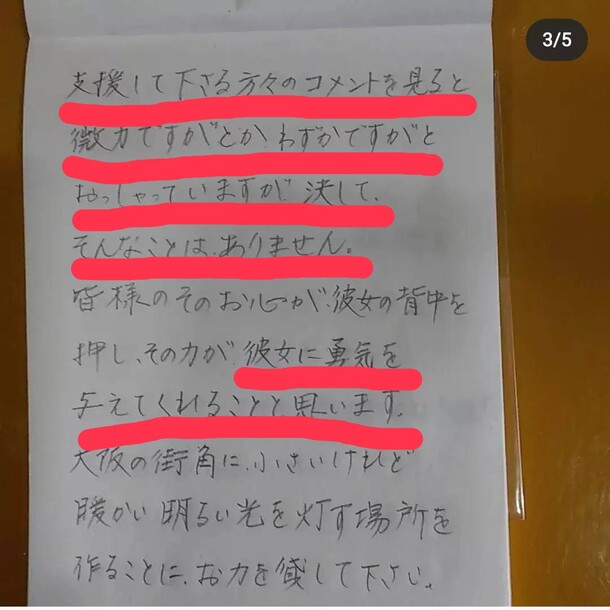 3/5
支援して下さる方々のコメントを見ると
微力ですがとか、わずかですがと
おっしゃっていますが、決して、
そんなことは、ありません。
皆様のそのお心が、彼女の背中を
押し、その力が、彼女に勇気を
与えてくれることと思います。
大阪の街角に、小さいけれど
暖かい明るい光を灯す場所を
作ることに、お力を貸して下さい。